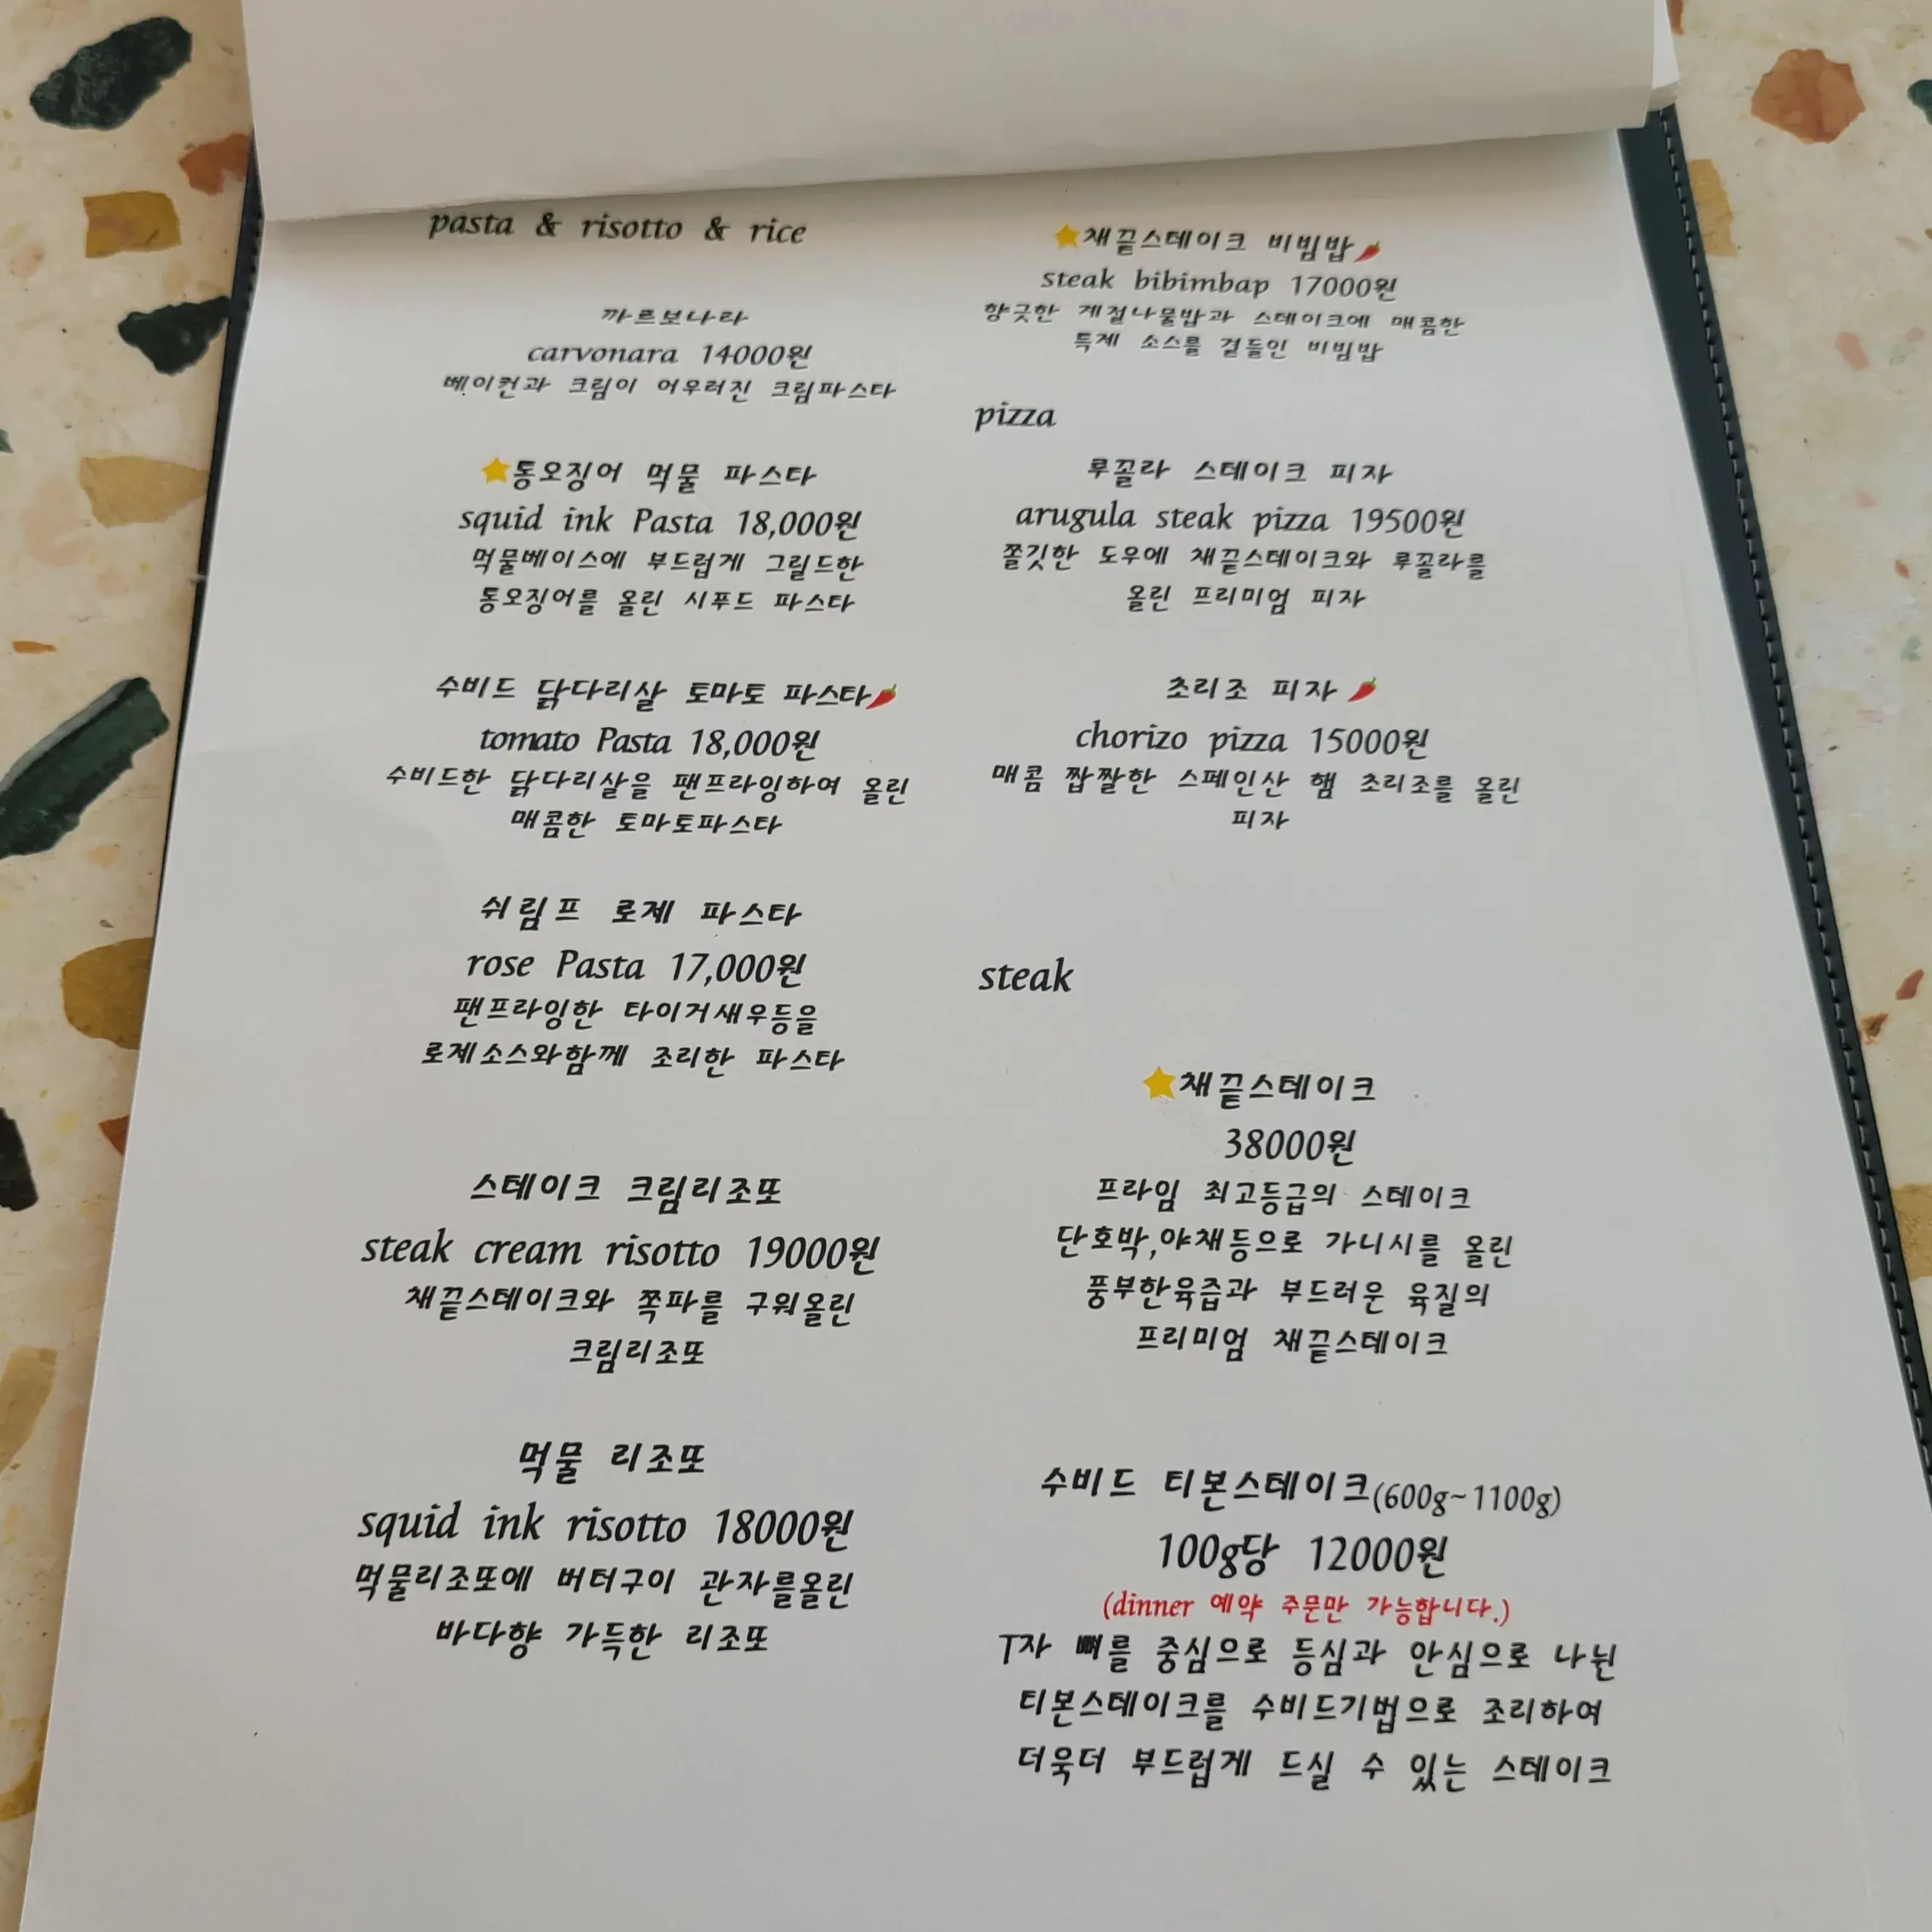 pasta & risotto & rice
까르보나라
carvonara 14000원
베이컨과 크림이 어우러진 크림파스타
⭐통오징어 먹물 파스타
squid ink Pasta 18,000원
먹물베이스에 부드럽게 그릴드한
통오징어를 올린 시푸드 파스타
수비드 닭다리살 토마토 파스타🌶
tomato Pasta 18,000원
수비드한 닭다리살을 팬프라잉하여 올린
매콤한 토마토파스타
쉬림프 로제 파스타
rose Pasta 17,000원
팬프라잉한 타이거새우등을
로제소스와함께 조리한 파스타
스테이크 크림리조또
steak cream risotto 19000원
채끝스테이크와 쪽파를 구워올린
크림리조또
먹물 리조또
squid ink risotto 18000원
먹물리조또에 버터구이 관자를올린
바다향 가득한 리조또
⭐채끝스테이크 비빔밥🌶
steak bibimbap 17000원
향긋한 계절나물밥과 스테이크에 매콤한
특제 소스를 곁들인 비빔밥
pizza
루꼴라 스테이크 피자
arugula steak pizza 19500원
쫄깃한 도우에 채끝스테이크와 루꼴라를
올린 프리미엄 피자
초리조 피자🌶
chorizo pizza 15000원
매콤 짭짤한 스페인산 햄 초리조를 올린
피자
steak
⭐채끝스테이크
38000원
프라임 최고등급의 스테이크
단호박,야채등으로 가니시를 올린
풍부한육즙과 부드러운 육질의
프리미엄 채끝스테이크
수비드 티본스테이크(600g~1100g)
100g당 12000원
(dinner 예약 주문만 가능합니다.)
T자 뼈를 중심으로 등심과 안심으로 나뉜
티본스테이크를 수비드기법으로 조리하여
더욱더 부드럽게 드실 수 있는 스테이크